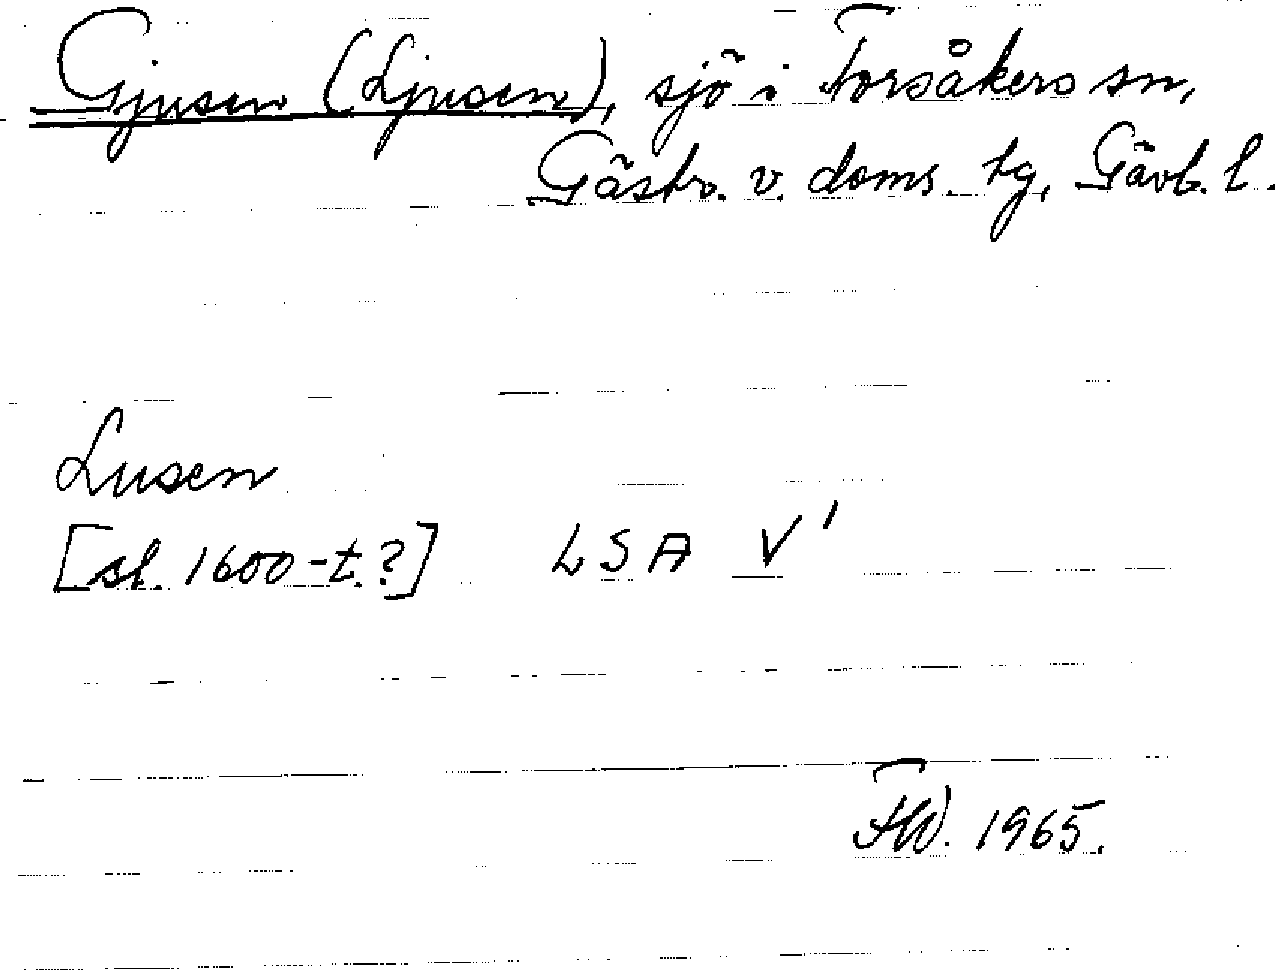 Gjusen (Ljusen), sjö i Torsåkers sn,
Gästr. v. doms. tg, Gävb. l.
Lusen
[sl. 1600-t.?] LSA V'
1965.